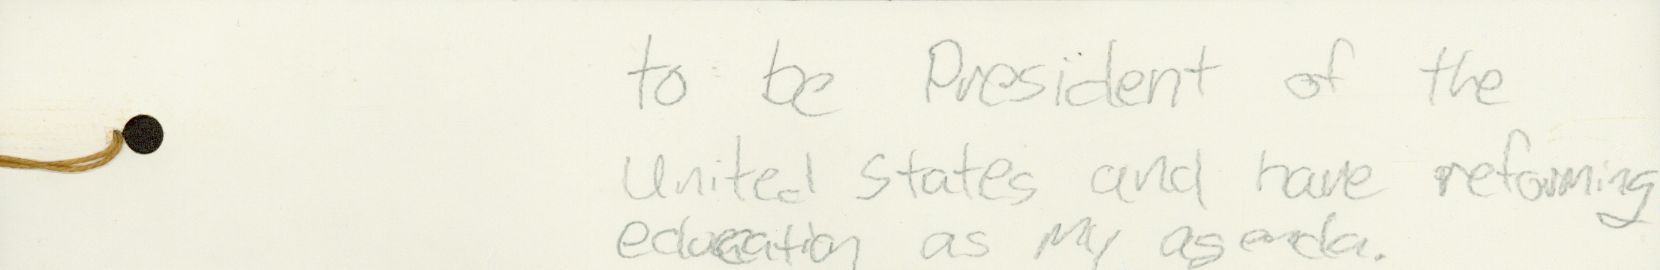 to be President of the
United States and have reforming
education as my agenda.